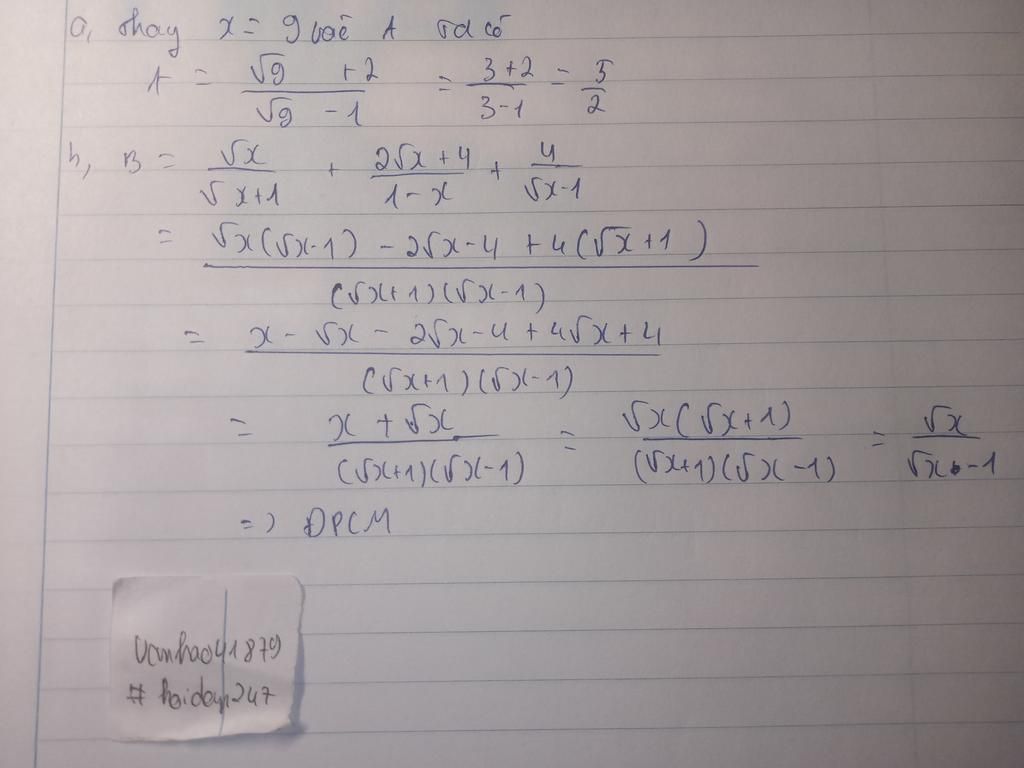 a, thay x = 9 vào A ta có
A = (√9 + 2)/(√9 - 1) = (3+2)/(3-1) = 5/2
b, B = √x/(√x+1) + (2√x+4)/(1-x) + 4/(√x-1)
= (√x(√x-1) - 2√x-4 + 4(√x+1))/((√x+1)(√x-1))
= (x - √x - 2√x-4 + 4√x+4)/((√x+1)(√x-1))
= (x + √x)/((√x+1)(√x-1)) = (√x(√x+1))/((√x+1)(√x-1)) = √x/(√x-1)
=> ĐPCM
Vanhao41879
# hoidap247